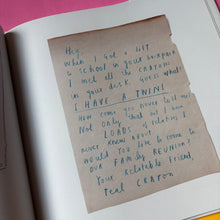 Hey,
When I got a lift
to school in your backpack
I met all the crayons
in your desk. Guess what?
I HAVE A TWIN!
How come you never told me?
Not only that but I have
LOADS of relatives I
never knew about.
Would you like to come to
our FAMILY REUNION?
Your Relatable Friend,
Teal CRAYON